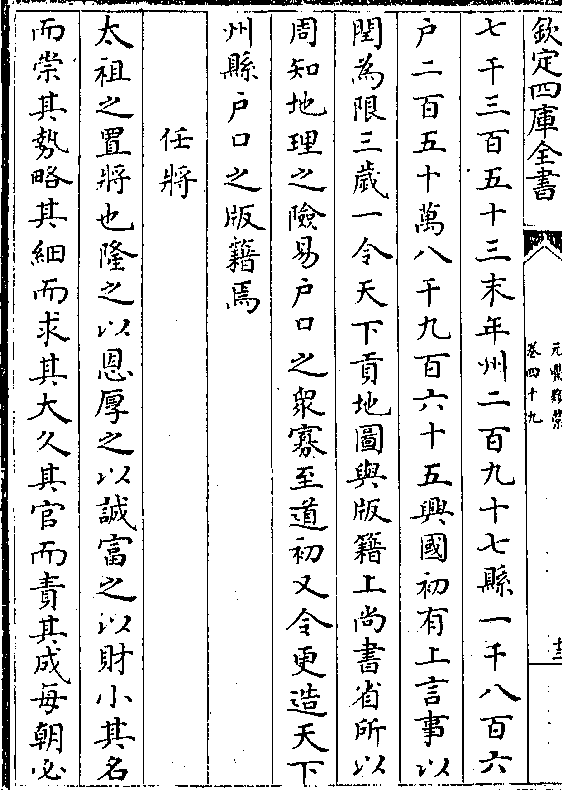 欽定四庫全書
元豐類藁
卷四十九
十三
七千三百五十三末年州二百九十七縣一千八百六
户二百五十萬八千九百六十五興國初有上言事以
閏為限三歲一令天下貢地圖與版籍上尚書省所以
周知地理之險易户口之衆寡至道初又令更造天下
州縣户口之版籍焉
任將
太祖之置將也隆之以恩厚之以誠富之以財小其名
而崇其勢略其細而求其大久其官而責其成每朝必